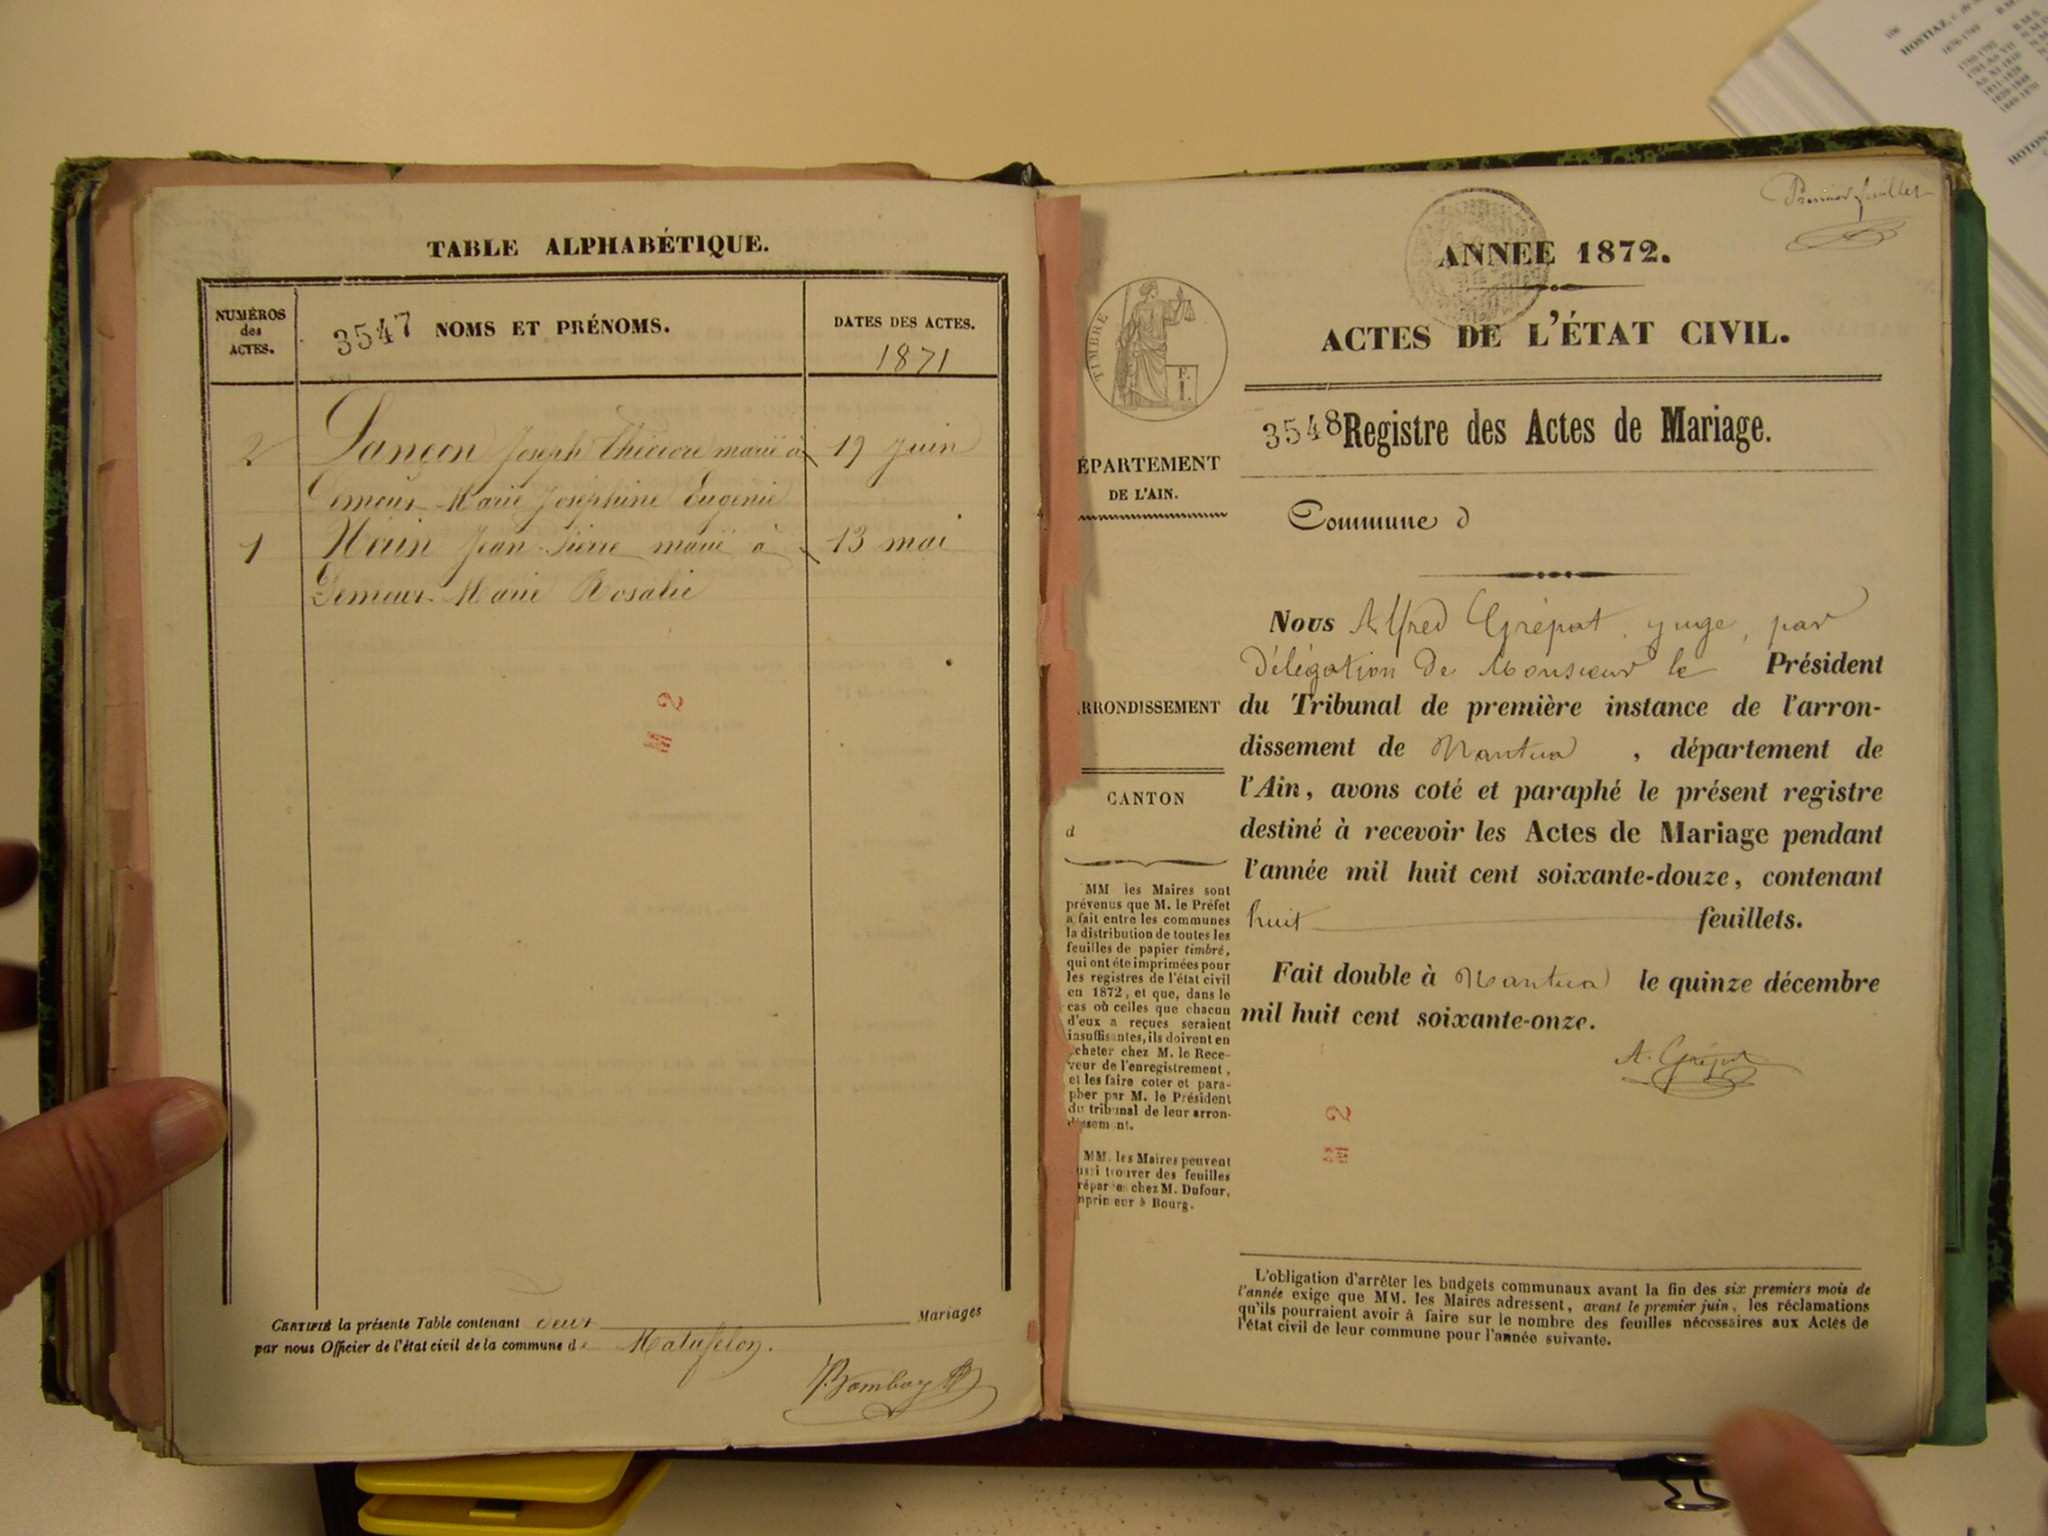 TABLE ALPHABÉTIQUE.
NUMÉROS
des
ACTES.
3547 NOMS ET PRÉNOMS.
DATES DES ACTES.
1871
2 Lançon Joseph marié à 17 juin
Marie Joséphine Eugénie
1 Jean Pierre marié à 13 mai
Marie Rosalie
M 2
CERTIFIÉ la présente Table contenant deux Mariages
par nous Officier de l'état civil de la commune de Matafelon.
Premier feuillet
ANNÉE 1872.
ACTES DE L'ÉTAT CIVIL.
TIMBRE
3548 Registre des Actes de Mariage.
ÉPARTEMENT
DE L'AIN.
Commune d
RRONDISSEMENT
CANTON
d
MM les Maires sont
prévenus que M. le Préfet
a fait entre les communes
la distribution de toutes les
feuilles de papier timbré,
qui ont été imprimées pour
les registres de l'état civil
en 1872, et que, dans le
cas où celles que chacun
d'eux a reçues seraient
insuffisantes, ils doivent en
cheter chez M. le Rece-
veur de l'enregistrement,
et les faire coter et para-
pher par M. le Président
du tribunal de leur arron-
dissement.
MM. les Maires peuvent
ussi trouver des feuilles
réparées chez M. Dufour,
mprimeur à Bourg.
Nous Alfred Grépat, juge, par
Délégation de Monsieur le Président
du Tribunal de première instance de l'arron-
dissement de Nantua, département de
l'Ain, avons coté et paraphé le présent registre
destiné à recevoir les Actes de Mariage pendant
l'année mil huit cent soixante-douze, contenant
huit feuillets.
Fait double à Nantua le quinze décembre
mil huit cent soixante-onze.
M 2
L'obligation d'arrêter les budgets communaux avant la fin des six premiers mois de
l'année exige que MM. les Maires adressent, avant le premier juin, les réclamations
qu'ils pourraient avoir à faire sur le nombre des feuilles nécessaires aux Actes de
l'état civil de leur commune pour l'année suivante.